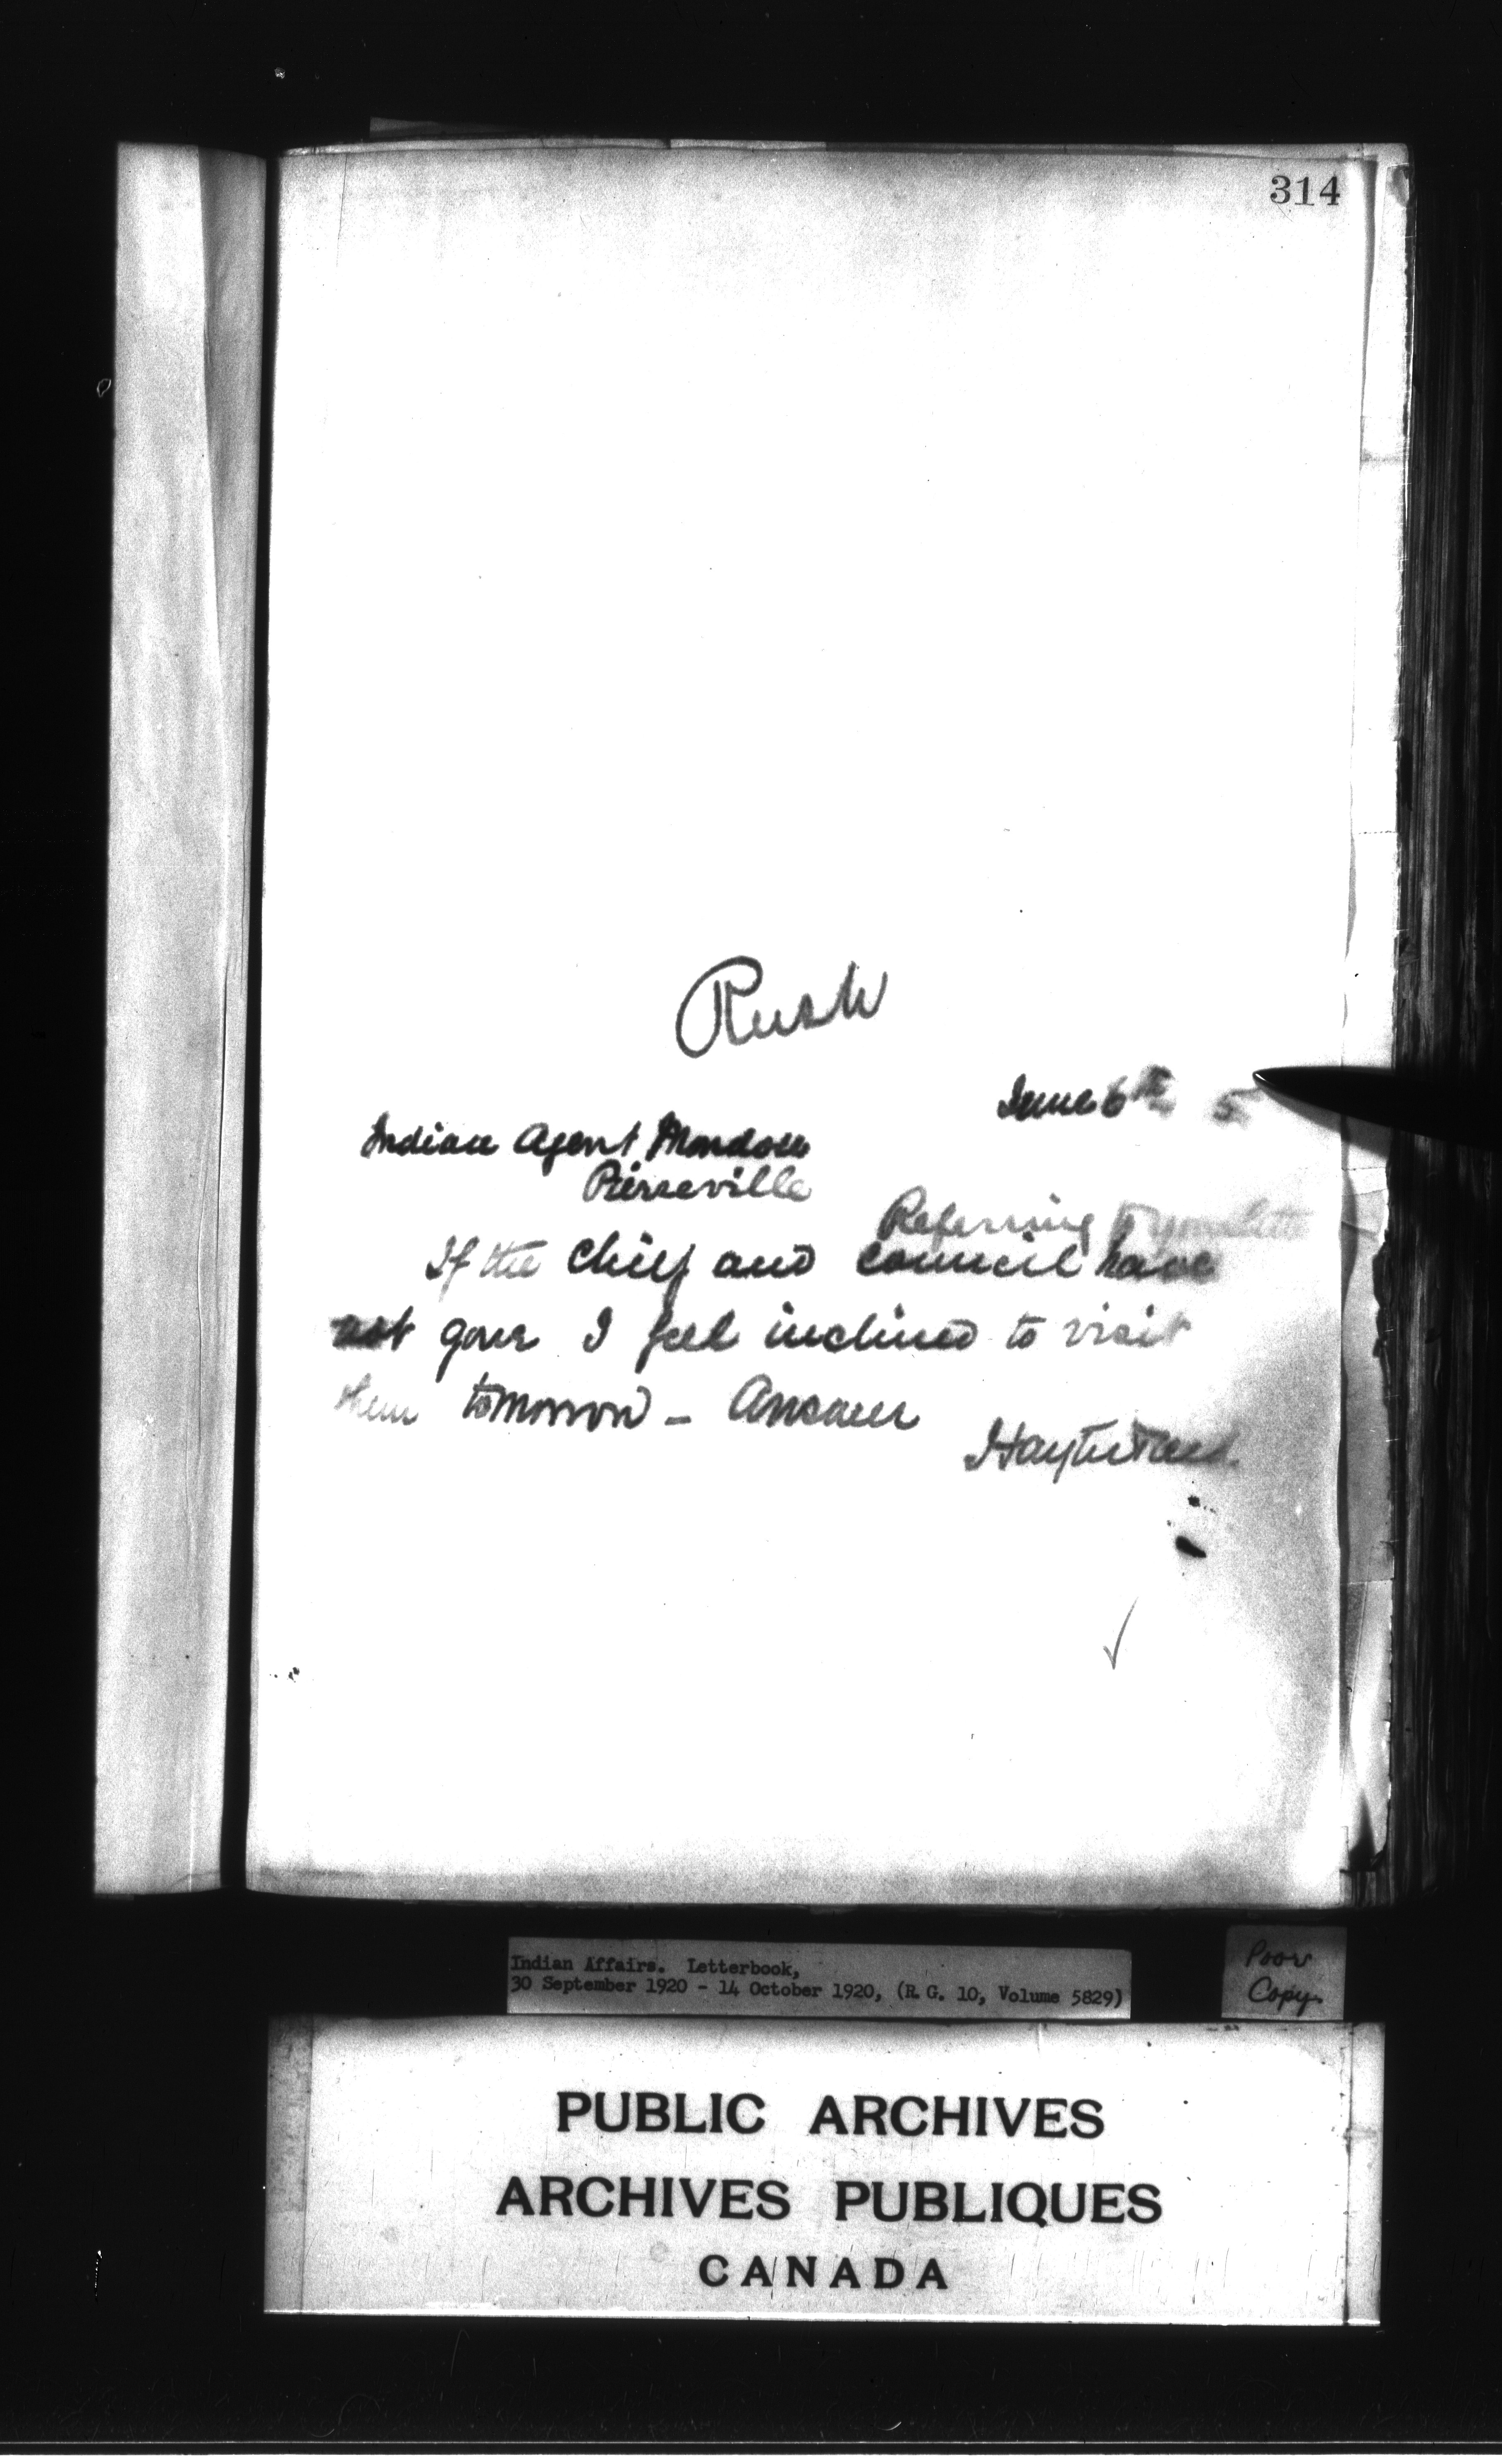 314
Rush
June 6th 5
Indian Agent Mondou
Pierreville
Referring to your letter
If the chief and council have
not gone I feel inclined to visit
them tomorrow - Answer
Hayter Reed.
Indian Affairs. Letterbook,
30 September 1920 - 14 October 1920, (R.G. 10, Volume 5829)
Poor
Copy
PUBLIC ARCHIVES
ARCHIVES PUBLIQUES
CANADA